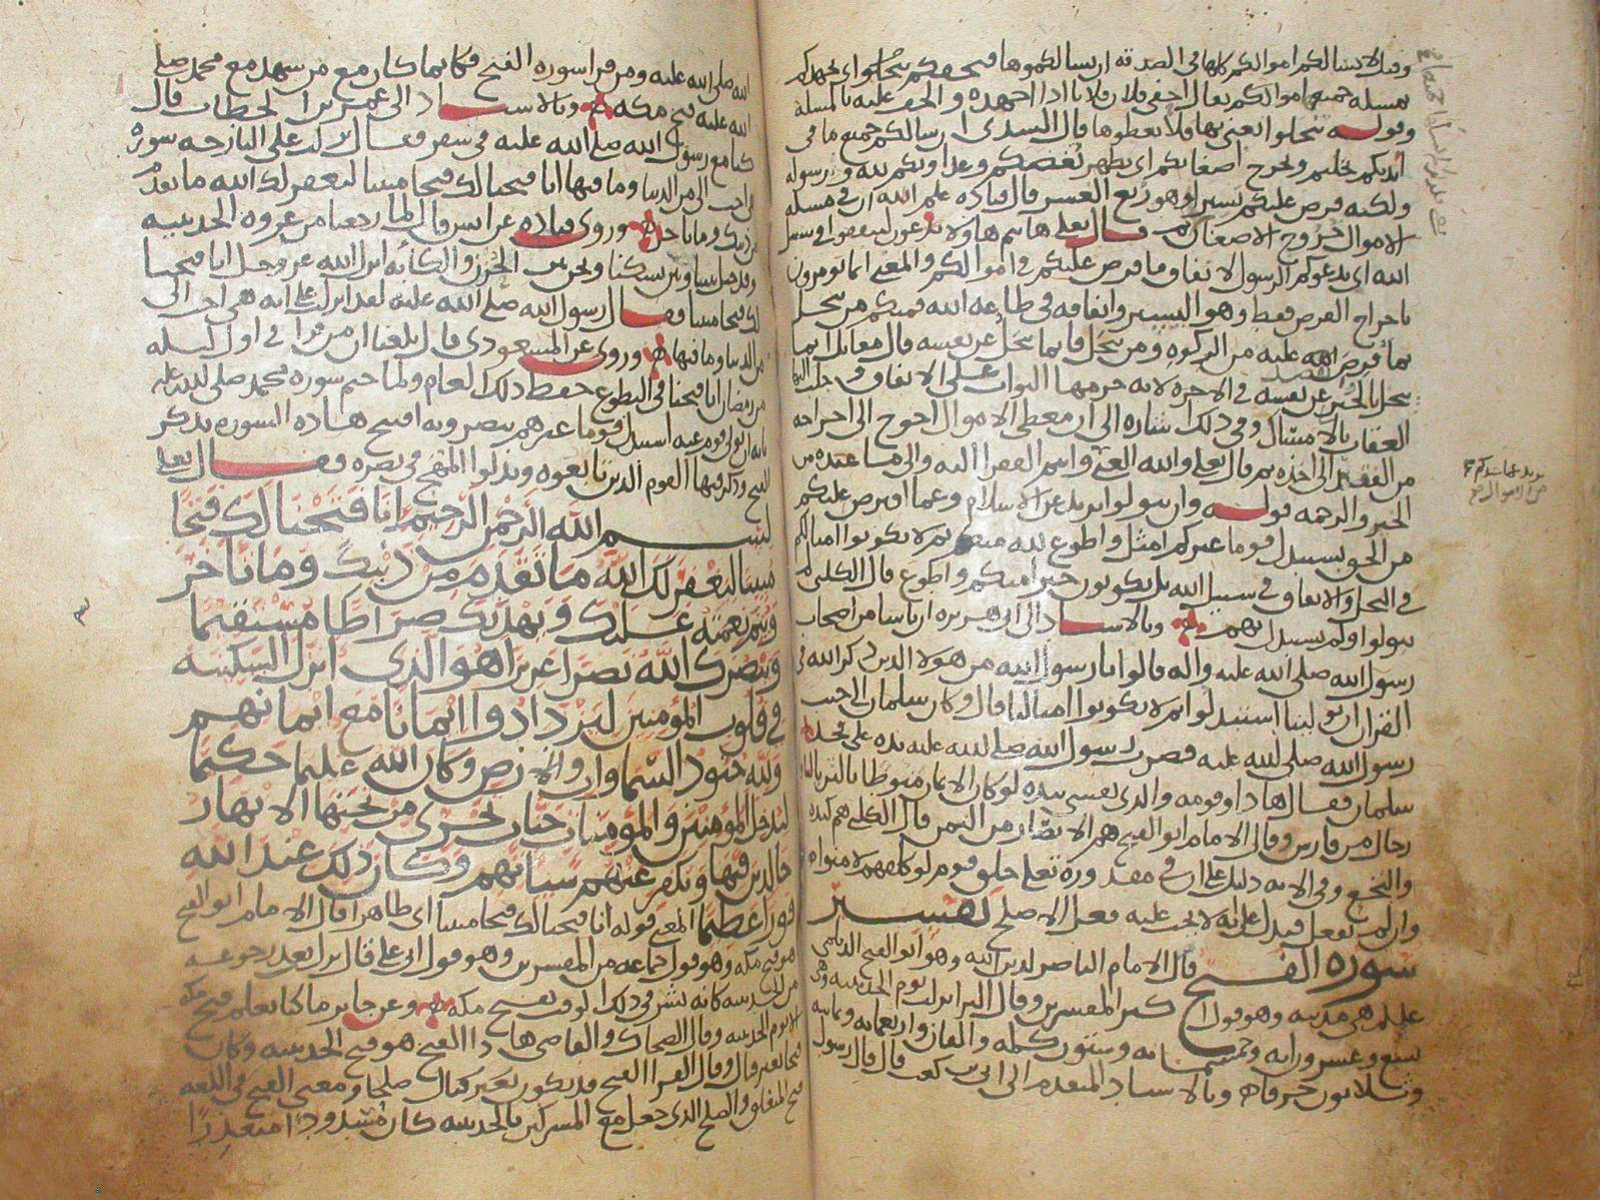 وقيل لا يسالكم اموالكم كلها في الصدقه ان يسالكموها فيحفكم تبخلوا اي يجهدكم
بمسله جميع اموالكم يقال احفى فلان فلانا اذا اجهده والحف عليه بالمسلة
وقوله تبخلوا يعني بها فلا تعطوها قال السدى ان سالكم جميع ما في
ايديكم بخلتم ويخرج اضغانكم اي يظهر بغضكم وعداوتكم لله ورسوله
ولكنه فرض عليكم يسيرا وهو ربع العشر قال قتاده علم الله ان في مسله
الاموال خروج الاضغان ثم قال تعلى هاانتم هاولا تدعون لتنفقوا في سبيل
الله اي يدعوكم الرسول لانفاق ما فرض عليكم في اموالكم والمعنى انما تومرون
باخراج الفرض فقط وهو اليسير وانفاقه في طاعه الله فمنكم من يبخل
بما فرض الله عليه من الزكوه ومن يبخل فانما يبخل عن نفسه قال مقاتل انما
يبخل بالخير عن نفسه في الاخره لانه حرمها الثواب على الانفاق
العقاب بالامساك وفي ذلك اشاره الى ان معطى الاموال احوج الى اخراجه
من الفقير الى اخذه ثم قال تعلى والله الغني وانتم الفقرا اليه والى ما عنده من
الخير والرحمه قوله وان تتولوا يريد عن الاسلام وعما افترض عليكم
من الحق يستبدل قوما غيركم امثل واطوع لله منكم ثم لا يكونوا امثالكم
في البخل والانفاق في سبيل الله بل يكونون خيرا منكم واطوع قال الكلبي لم
يتولوا ولم يستبدل بهم وبالاسناد الى ابي هريره ان ناسا من اصحاب
رسول الله صلى الله عليه واله قالوا يا رسول الله من هولا الذين ذكر الله في
القران ان تولينا استبدلوا ثم لا يكونوا امثالنا قال وكان سلمان الى جنب
رسول الله صلى الله عليه فضرب رسول الله صلى الله عليه يده على فخذ
سلمان فقال هذا وقومه والذي نفسي بيده لو كان الايمان منوطا بالثريا لناله
رجال من فارس وقال الامام ابو الفتح هم الانصار من اليمن قال الكلبي هم كنده
والنخع وفي الايه دليل على ان في مقدوره تعلى خلق قوم لو كلفهم لامنوا
وان لم يفعل فيدل على انه لا يجب عليه فعل الاصلح تفسير
سورة الفتح قال الامام الناصر لدين الله وهو ابو الفتح الديلمي
عليلم هي مدنيه وهو قول اكثر المفسرين وقال البرا نزلت يوم الحديبيه وهى
تسع وعشرون ايه وخمسمائه وستون كلمه والفان واربعمائه وثمانيه
وثلاثون حرفا وبالاسناد المتقدم الى ابي بن كعب قال قال رسول
الله صلى الله عليه ومن قرا سورة الفتح فكانما كان مع من شهد مع محمد صلى
الله عليه فتح مكه وبالاسناد الى عمر بن الخطاب قال
كنا مع رسول الله صلى الله عليه في سفر فقال نزلت علي البارحه سورة
هي احب الي من الدنيا وما فيها انا فتحنا لك فتحا مبينا ليغفر لك الله ما تقدم
من ذنبك وما تاخر وروى قتاده عن انس قال لما رجعنا من غزوه الحديبيه
وقد حيل بيننا وبين نسكنا ونحن بين الحزن والكابه انزل الله عز وجل انا فتحنا
لك فتحا مبينا فقال رسول الله صلى الله عليه لقد انزلت علي ايه هي احب الي
من الدنيا وما فيها وروى عن المسعودى قال بلغنا ان من قرا في اول ليله
من رمضان انا فتحنا في التطوع حفظ ذلك العام ولما ختم سورة محمد صلى الله عليه
بانه ان تولى قومه عنه استبدل قوما غيرهم ينصرونه افتتح هذه السورة بذكر
الفتح وذكر فيها القوم الذين بايعوه وبذلوا المهج في نصره فقال تعلى
بسم الله الرحمن الرحيم إنا فتحنا لك فتحا
مبينا ليغفر لك الله ما تقدم من ذنبك وما تاخر
ويتم نعمته عليك ويهديك صراطا مستقيما
وينصرك الله نصرا عزيزا هو الذي انزل السكينه
في قلوب المؤمنين ليزدادوا ايمانا مع ايمانهم
ولله جنود السماوات والارض وكان الله عليما حكيما
ليدخل المؤمنين والمؤمنات جنات تجرى من تحتها الانهار
خالدين فيها ويكفر عنهم سياتهم وكان ذلك عند الله
فوزا عظيما المعنى قوله انا فتحنا لك فتحا مبينا اي ظاهرا قال الامام ابو الفتح
هو فتح مكه وهو قول جماعه من المفسرين وهو قول ابي علي قال نزل بعد رجوعه
من الحديبيه كانه بشر في ذلك الوقت بفتح مكه وعن جابر ما كنا نعلم فتح مكه
الا يوم الحديبيه وقال الضحاك والقاضي هذا الفتح هو فتح الحديبيه وكان
فتحا بغير قتال وقال الفرا الفتح قد يكون بغير قتال صلحا ومعنى الفتح في اللغه
فتح المنغلق والصلح الذي جعل مع المشركين بالحديبيه كان مشدودا متعذرا